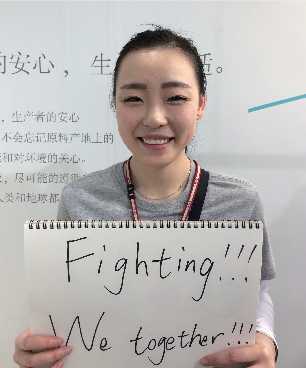 的安心，生 活。
，生产者的安心
不会忘记原料产地上的
和对环境的关心。
，尽可能的
类和地球都
Fighting!!!
We together!!!